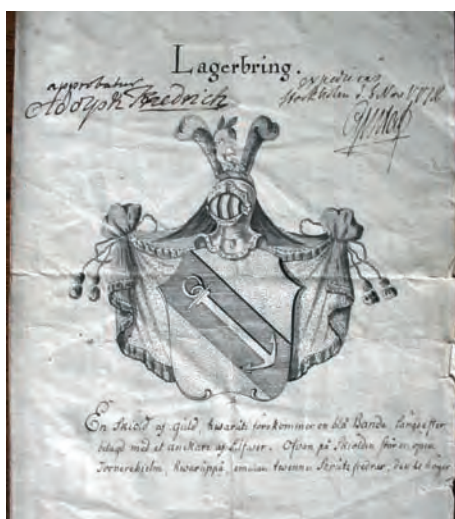 Lagerbring.
approbatur
Adolph Fredrich
Stockholm d. 8 Nov.
En Skiöld af guld, hwaruti förekommer en blå Bande, långs efter
belagd med et anckare af Silfwer. Ofwan på Skiölden står en open
Tornerehielm, hwaruppå, emellan twenne Strutsfiedrar, den ena